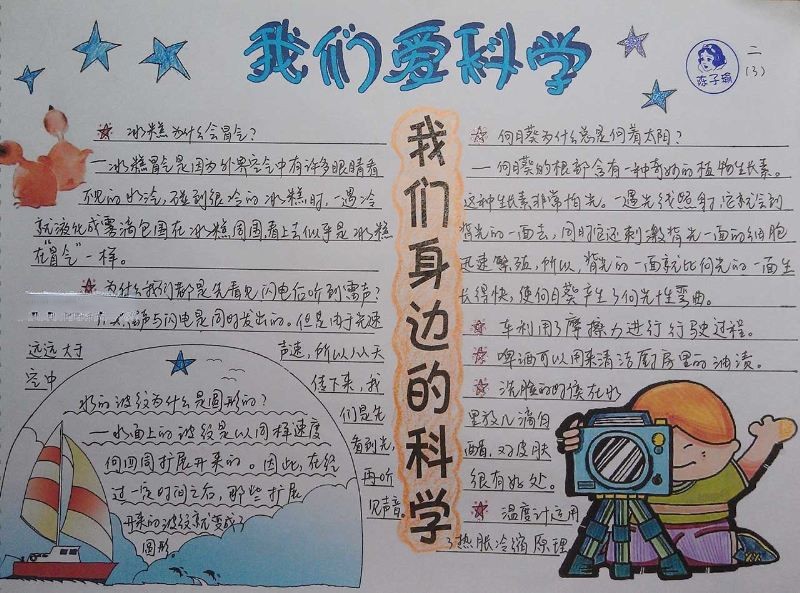 我们爱科学
陈子瑜
二
(3)
我们身边的科学
冰糕为什么会冒气?
一冰糕冒气是因为外界空气中有许多眼睛看
不见的水汽,碰到很冷的冰糕时,一遇冷
就液化成雾滴包围在冰糕周围看上去似乎是冰糕
在“冒气”一样。
为什么我们都是先看见闪电后听到雷声?
声与闪电是同时发出的。但是由于光速
远远大于
声速,所以从天
空中
传下来,我
们是先
看到光,
再听
见声音。
水的波纹为什么是圆形的?
一水面上的波纹是以同样速度
向四周扩展开来的。因此,在经
过一定时间之后,那些扩展
开来的波纹就变成了
圆形。
向日葵为什么总是向着太阳?
一向日葵的根部含有一种奇妙的植物生长素。
这种生长素非常怕光。一遇光线照射,它就会到
背光的一面去,同时它还刺激背光一面的细胞
迅速繁殖,所以,背光的一面就比向光的一面生
长得快,使向日葵产生了向光性弯曲。
车利用了摩擦力进行行驶过程。
啤酒可以用来清洁厨房里的油渍。
洗脸的时候在水
里放几滴白
醋,对皮肤
很有好处。
温度计运用
了热胀冷缩原理